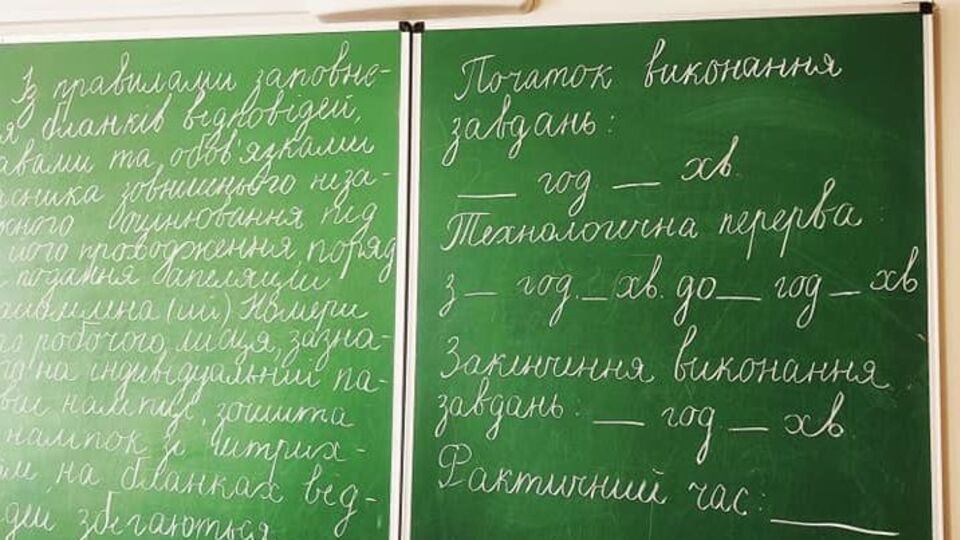 Із правилами заповне-
ня бланків відповідей,
авами та обов'язками
асника зовнішнього неза-
жного оцінювання під
його проходження, поряд
подання апеляцій
(ий) Номери
робочого місця, зазна-
го на індивідуальній па-
наліпці, зошита
наліпок зі штрих-
на бланках від-
дей збігаються
Початок виконання
завдань:
__ год __ хв.
Технологічна перерва:
з__ год.__ хв. до__ год__ хв
Закінчення виконання
завдань: __ год __ хв.
Фактичний час: ____